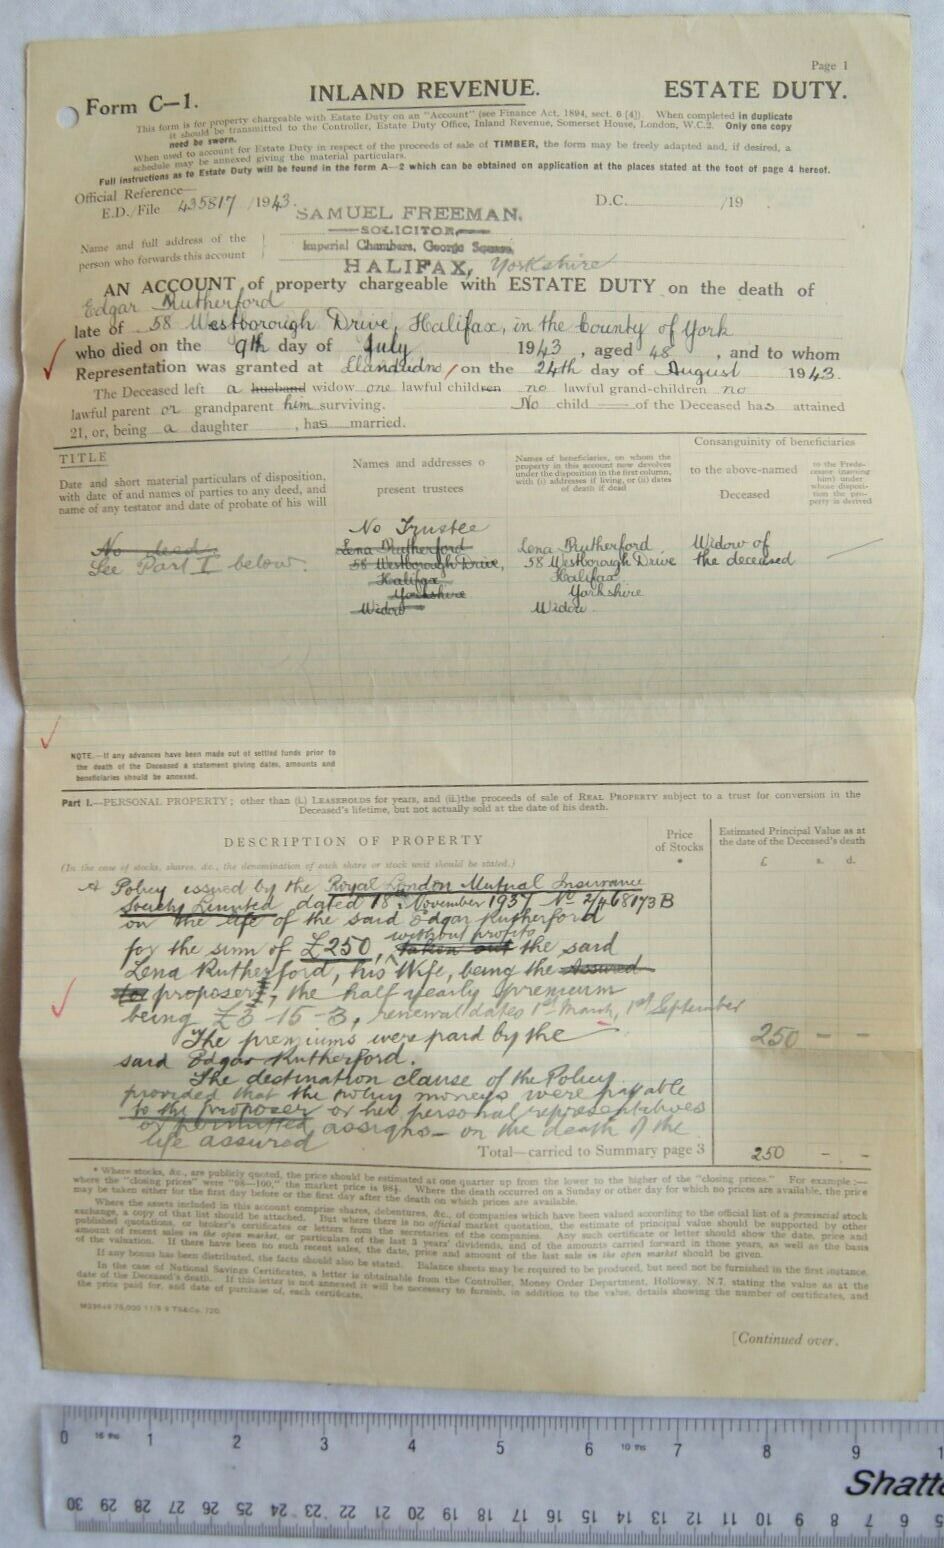 Page 1
Form C—1. INLAND REVENUE. ESTATE DUTY.
This form is for property chargeable with Estate Duty on an "Account" (see Finance Act, 1894, sect. 6 [4]). When completed in duplicate
it should be transmitted to the Controller, Estate Duty Office, Inland Revenue, Somerset House, London, W.C.2. Only one copy
need be sworn.
When used to account for Estate Duty in respect of the proceeds of sale of TIMBER, the form may be freely adapted and, if desired, a
schedule may be annexed giving the material particulars.
Full instructions as to Estate Duty will be found in the form A—2 which can be obtained on application at the places stated at the foot of page 4 hereof.
Official Reference—
E.D./File 435817 /1943. D.C. /19 .
SAMUEL FREEMAN,
SOLICITOR,
Name and full address of the
person who forwards this account
Imperial Chambers, George Square,
HALIFAX, Yorkshire
AN ACCOUNT of property chargeable with ESTATE DUTY on the death of
Edgar Rutherford
late of 58 Westborough Drive, Halifax, in the County of York
who died on the 9th day of July 1943, aged 48, and to whom
Representation was granted at Llandudno on the 24th day of August 1943.
The Deceased left a husband widow one lawful children no lawful grand-children no
lawful parent or grandparent him surviving. No child of the Deceased has attained
21, or, being a daughter, has married.
TITLE
Date and short material particulars of disposition,
with date of and names of parties to any deed, and
name of any testator and date of probate of his will
Names and addresses o
present trustees
Names of beneficiaries, on whom the
property in this account now devolves
under the disposition in the first column,
with (i) addresses if living, or (ii) dates
of death if dead
Consanguinity of beneficiaries
to the above-named
Deceased
to the Prede-
cessor (naming
him) under
whose disposi-
tion the pro-
perty is derived
No deed.
See Part I below.
No Trustee
Lena Rutherford
58 Westborough Drive,
Halifax
Yorkshire
Widow
Lena Rutherford
58 Westborough Drive
Halifax
Yorkshire
Widow
Widow of
the deceased
NOTE.—If any advances have been made out of settled funds prior to
the death of the Deceased a statement giving dates, amounts and
beneficiaries should be annexed.
Part I.—PERSONAL PROPERTY; other than (i.) LEASEHOLDS for years, and (ii.) the proceeds of sale of REAL PROPERTY subject to a trust for conversion in the
Deceased's lifetime, but not actually sold at the date of his death.
DESCRIPTION OF PROPERTY
(In the case of stocks, shares, &c., the denomination of each share or stock unit should be stated.)
Price
of Stocks
*
Estimated Principal Value as at
the date of the Deceased's death
£ s. d.
A Policy issued by the Royal London Mutual Insurance
Society Limited dated 18 November 1937 No 2/468173B
on the life of the said Edgar Rutherford
without profits
for the sum of £250, taken out the said
Lena Rutherford, his Wife, being the Assured
proposer, the half yearly premium
being £3-15-3, renewal dates 1st March, 1st September
The premiums were paid by the
said Edgar Rutherford.
250 - -
The destination clause of the Policy
provided that the policy moneys were payable
to the proposer or her personal representatives
or permitted assigns - on the death of the
life assured
Total—carried to Summary page 3 250 - -
* Where stocks, &c., are publicly quoted, the price should be estimated at one quarter up from the lower to the higher of the "closing prices." For example:—
where the "closing prices" were "98—100," the market price is 98½. Where the death occurred on a Sunday or other day for which no prices are available, the price
may be taken either for the first day before or the first day after the death on which prices are available.
Where the assets included in this account comprise shares, debentures, &c., of companies which have been valued according to the official list of a provincial stock
exchange, a copy of that list should be attached. But where there is no official market quotation, the estimate of principal value should be supported by other
published quotations, or broker's certificates or letters from the secretaries of the companies. Any such certificate or letter should show the date, price and
amount of recent sales in the open market, or particulars of the last 3 years' dividends, and of the amounts carried forward in those years, as well as the basis
of the valuation. If there have been no such recent sales, the date, price and amount of the last sale in the open market should be given.
If any bonus has been distributed, the facts should also be stated. Balance sheets may be required to be produced, but need not be furnished in the first instance.
In the case of National Savings Certificates, a letter is obtainable from the Controller, Money Order Department, Holloway, N.7, stating the value as at the
date of the Deceased's death. If this letter is not annexed it will be necessary to furnish, in addition to the value, details showing the number of certificates, and
the price paid for, and date of purchase of, each certificate.
[Continued over.
0 16 ths 1 2 3 4 5 6 10 ths 7 8 9 1
Shatte
30 29 28 27 26 25 24 23 22 21 20 19 18 17 16 15 14 13 12 11 10 9 8 7 6 5